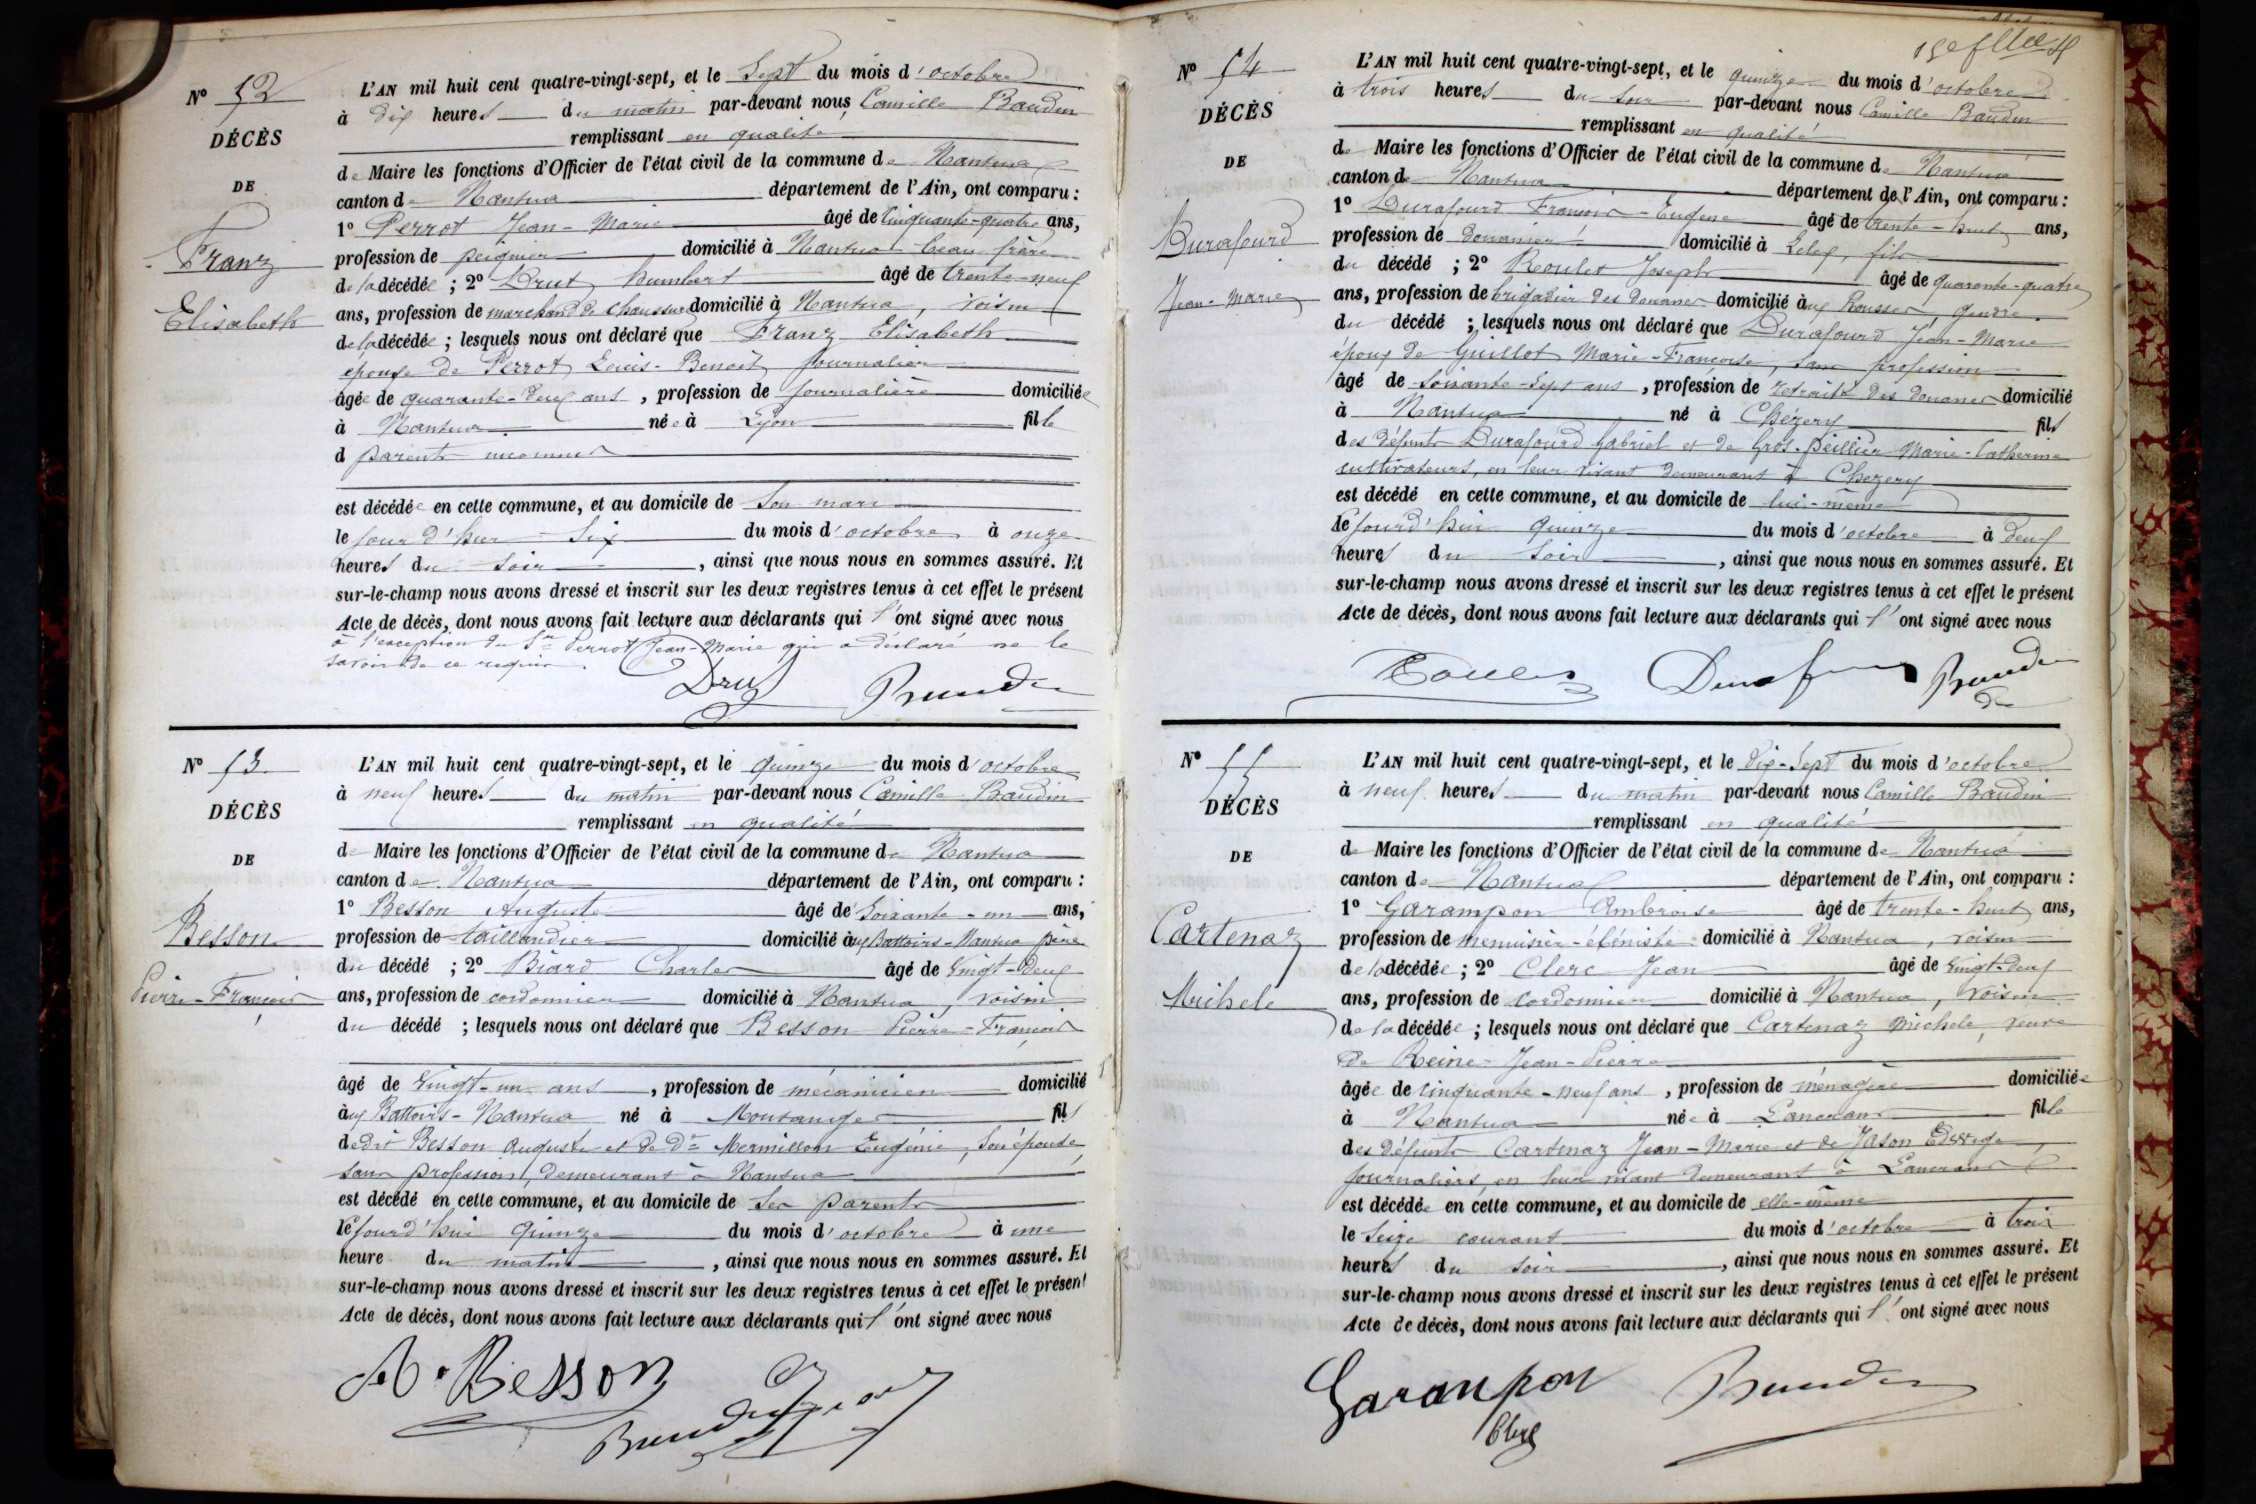 N° 52
DÉCÈS
DE
Franz
Elisabeth
L'AN mil huit cent quatre-vingt-sept, et le Sept du mois d'octobre
à dix heures du matin par-devant nous Camille Baudin
remplissant en qualité
de Maire les fonctions d'Officier de l'état civil de la commune de Nantua
canton de Nantua département de l'Ain, ont comparu :
1° Perrot Jean-Marie âgé de Cinquante-quatre ans,
profession de peignier domicilié à Nantua beau-frère
de la décédée ; 2° Drut humbert âgé de trente-neuf
ans, profession de marchand de chaussures domicilié à Nantua, voisin
de la décédée ; lesquels nous ont déclaré que Franz Elisabeth
épouse de Perrot Louis-Benoit journalier
âgée de quarante-deux ans, profession de journalière domiciliée
à Nantua née à Lyon fille
d parents inconnus
est décédée en cette commune, et au domicile de Son mari
le jour d'hier Six du mois d'octobre à onze
heures du Soir, ainsi que nous nous en sommes assuré. Et
sur-le-champ nous avons dressé et inscrit sur les deux registres tenus à cet effet le présent
Acte de décès, dont nous avons fait lecture aux déclarants qui l'ont signé avec nous
à l'exception du Sr Perrot Jean-Marie qui a déclaré ne le
savoir de ce requis.
Drut Baudin
N° 53
DÉCÈS
DE
Besson
Pierre-François
L'AN mil huit cent quatre-vingt-sept, et le quinze du mois d'octobre
à neuf heures du matin par-devant nous Camille Baudin
remplissant en qualité
de Maire les fonctions d'Officier de l'état civil de la commune de Nantua
canton de Nantua département de l'Ain, ont comparu :
1° Besson Auguste âgé de Soixante-un ans,
profession de taillandier domicilié aux Battoirs-Nantua père
du décédé ; 2° Biard Charles âgé de Vingt-deux
ans, profession de cordonnier domicilié à Nantua, voisin
du décédé ; lesquels nous ont déclaré que Besson Pierre-François
âgé de Vingt-un ans, profession de mécanicien domicilié
aux Battoirs-Nantua né à Montanges fils
dedit Besson Auguste et de De Mermillon Eugénie, Son épouse,
sans profession, demeurant à Nantua
est décédé en cette commune, et au domicile de Ses parents
le jourd'hui quinze du mois d'octobre à une
heure du matin, ainsi que nous nous en sommes assuré. Et
sur-le-champ nous avons dressé et inscrit sur les deux registres tenus à cet effet le présent
Acte de décès, dont nous avons fait lecture aux déclarants qui l'ont signé avec nous
A. Besson
Baudin
N° 54
DÉCÈS
DE
Durafourd
Jean-Marie
L'AN mil huit cent quatre-vingt-sept, et le quinze du mois d'octobre
à trois heures du Soir par-devant nous Camille Baudin
remplissant en qualité
de Maire les fonctions d'Officier de l'état civil de la commune de Nantua
canton de Nantua département de l'Ain, ont comparu :
1° Durafourd François-Eugène âgé de trente-huit ans,
profession de Douanier domicilié à Lelex, fils
du décédé ; 2° Roulet Joseph âgé de quarante-quatre
ans, profession de brigadier des douanes domicilié aux Rousses, gendre
du décédé ; lesquels nous ont déclaré que Durafourd Jean-Marie
époux de Guillot Marie-Françoise, sans profession
âgé de Soixante-Sept ans, profession de retraité des douanes domicilié
à Nantua né à Chézery fils
des défunts Durafourd Gabriel et de Gros-Peillier Marie-Catherine
cultivateurs, en leur vivant demeurant à Chezery
est décédé en cette commune, et au domicile de lui-même
le jourd'hui quinze du mois d'octobre à deux
heures du Soir, ainsi que nous nous en sommes assuré. Et
sur-le-champ nous avons dressé et inscrit sur les deux registres tenus à cet effet le présent
Acte de décès, dont nous avons fait lecture aux déclarants qui l'ont signé avec nous
Roulet Baudin
N° 55
DÉCÈS
DE
Cartenaz
Michele
L'AN mil huit cent quatre-vingt-sept, et le Dix-Sept du mois d'octobre
à neuf heures du matin par-devant nous Camille Baudin
remplissant en qualité
de Maire les fonctions d'Officier de l'état civil de la commune de Nantua
canton de Nantua département de l'Ain, ont comparu :
1° Garampon Ambroise âgé de trente-huit ans,
profession de menuisier-ébéniste domicilié à Nantua, voisin
de la décédée ; 2° Clerc Jean âgé de Vingt-deux
ans, profession de cordonnier domicilié à Nantua, voisin
de la décédée ; lesquels nous ont déclaré que Cartenaz Michele, veuve
de Reine Jean-Pierre
âgée de cinquante-neuf ans, profession de ménagère domiciliée
à Nantua née à Lancrans fille
des défunts Cartenaz Jean-Marie et de Jason Edwige,
journaliers, en leur vivant demeurant à Lancrans
est décédée en cette commune, et au domicile de elle-même
le Seize courant du mois d'octobre à trois
heures du Soir, ainsi que nous nous en sommes assuré. Et
sur-le-champ nous avons dressé et inscrit sur les deux registres tenus à cet effet le présent
Acte de décès, dont nous avons fait lecture aux déclarants qui l'ont signé avec nous
Garampon Baudin
Clerc